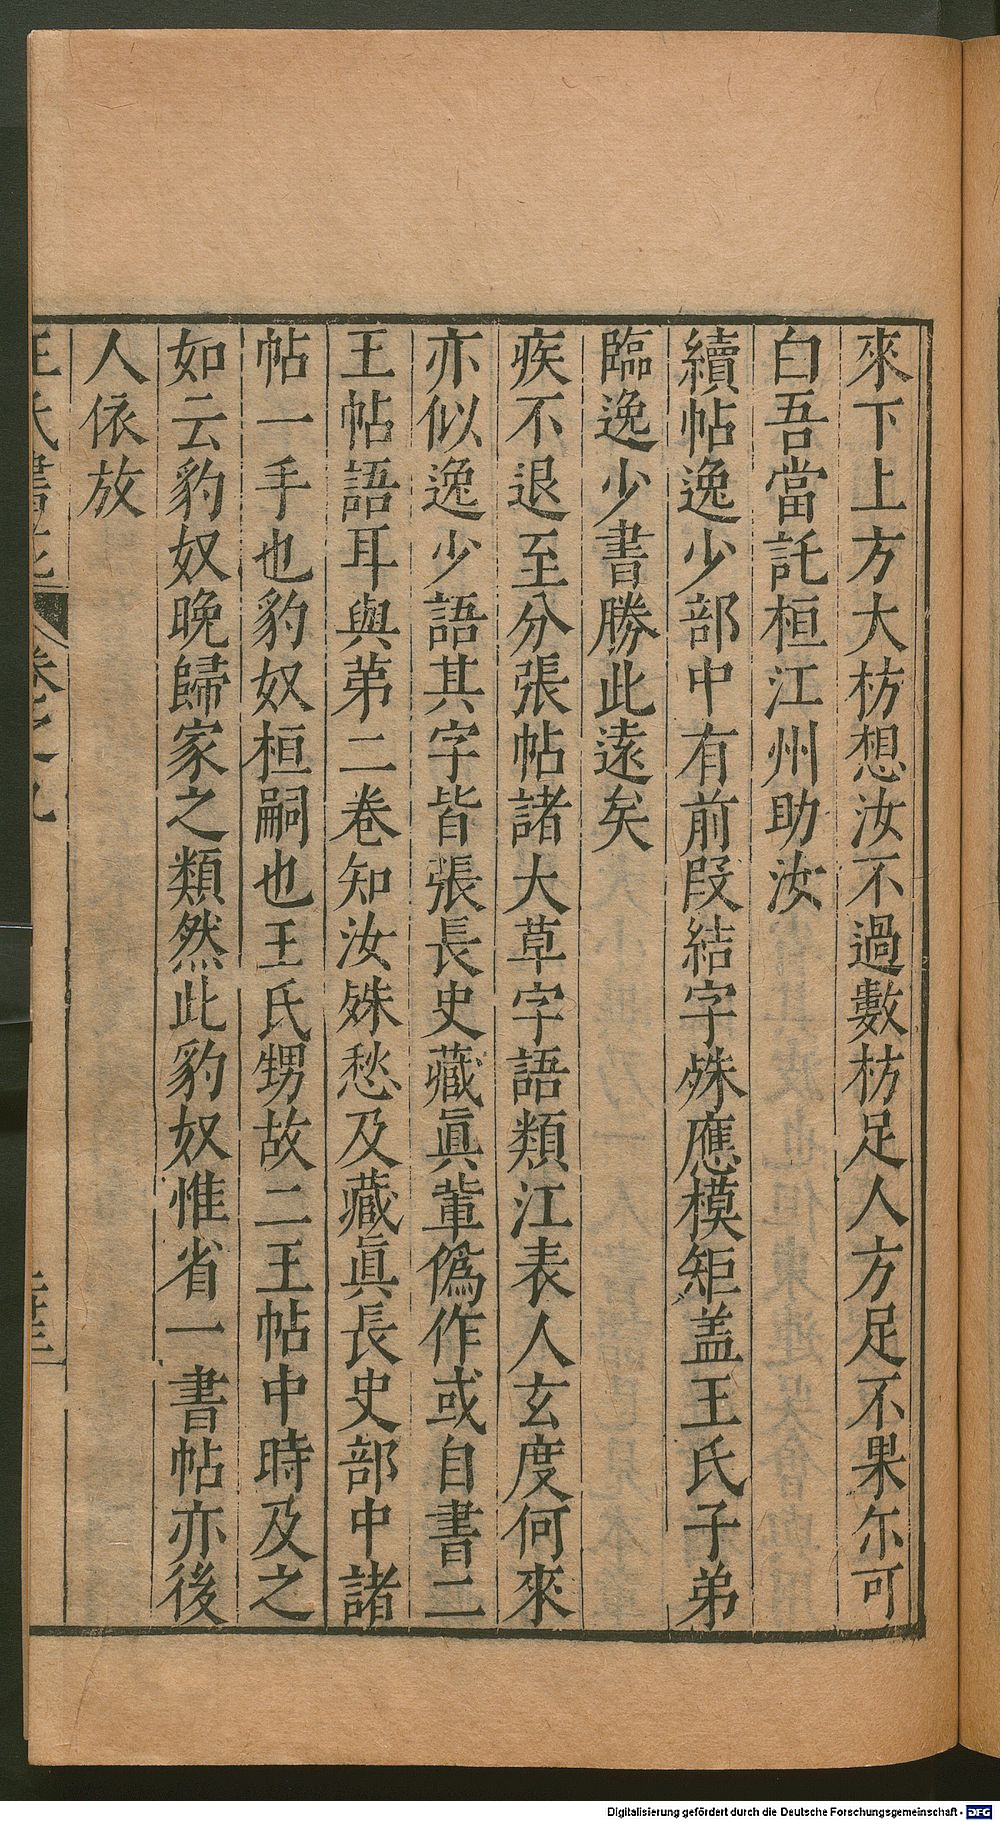 來下上方大枋想汝不過數枋足人方足不果尓可
白吾當託桓江州助汝
續帖逸少部中有前叚結字殊應模矩盖王氏子弟
臨逸少書勝此遠矣
疾不退至分張帖諸大草字語類江表人玄度何來
亦似逸少語其字皆張長史藏眞軰僞作或自書二
王帖語耳與苐二卷知汝殊愁及藏眞長史部中諸
帖一手也豹奴桓嗣也王氏甥故二王帖中時及之
如云豹奴晚歸家之類然此豹奴惟省一書帖亦後
人依放
王氏書苑 卷之九
Digitalisierung gefördert durch die Deutsche Forschungsgemeinschaft - DFG